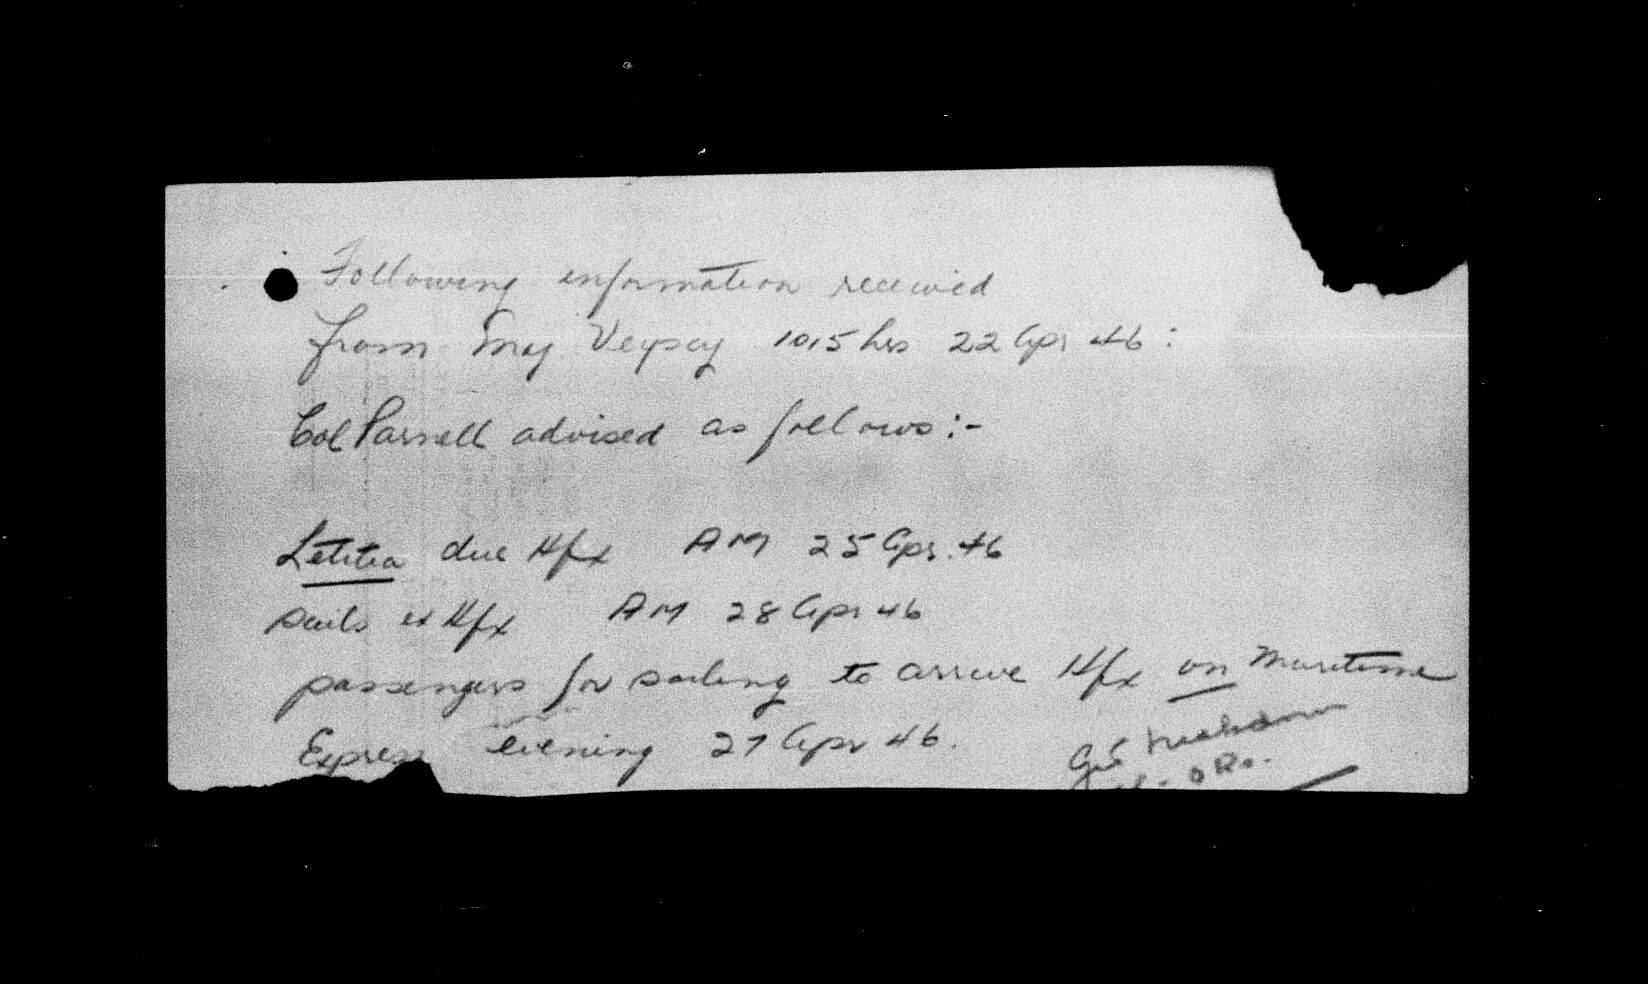 Following information received
from Maj Veysey 1015 hrs 22 Apr 46:
Col Parnell advised as follows:-
Letitia due Hfx AM 25 Apr. 46
sails ex Hfx AM 28 Apr 46
passengers for sailing to arrive Hfx on Maritime
Express evening 27 Apr 46.